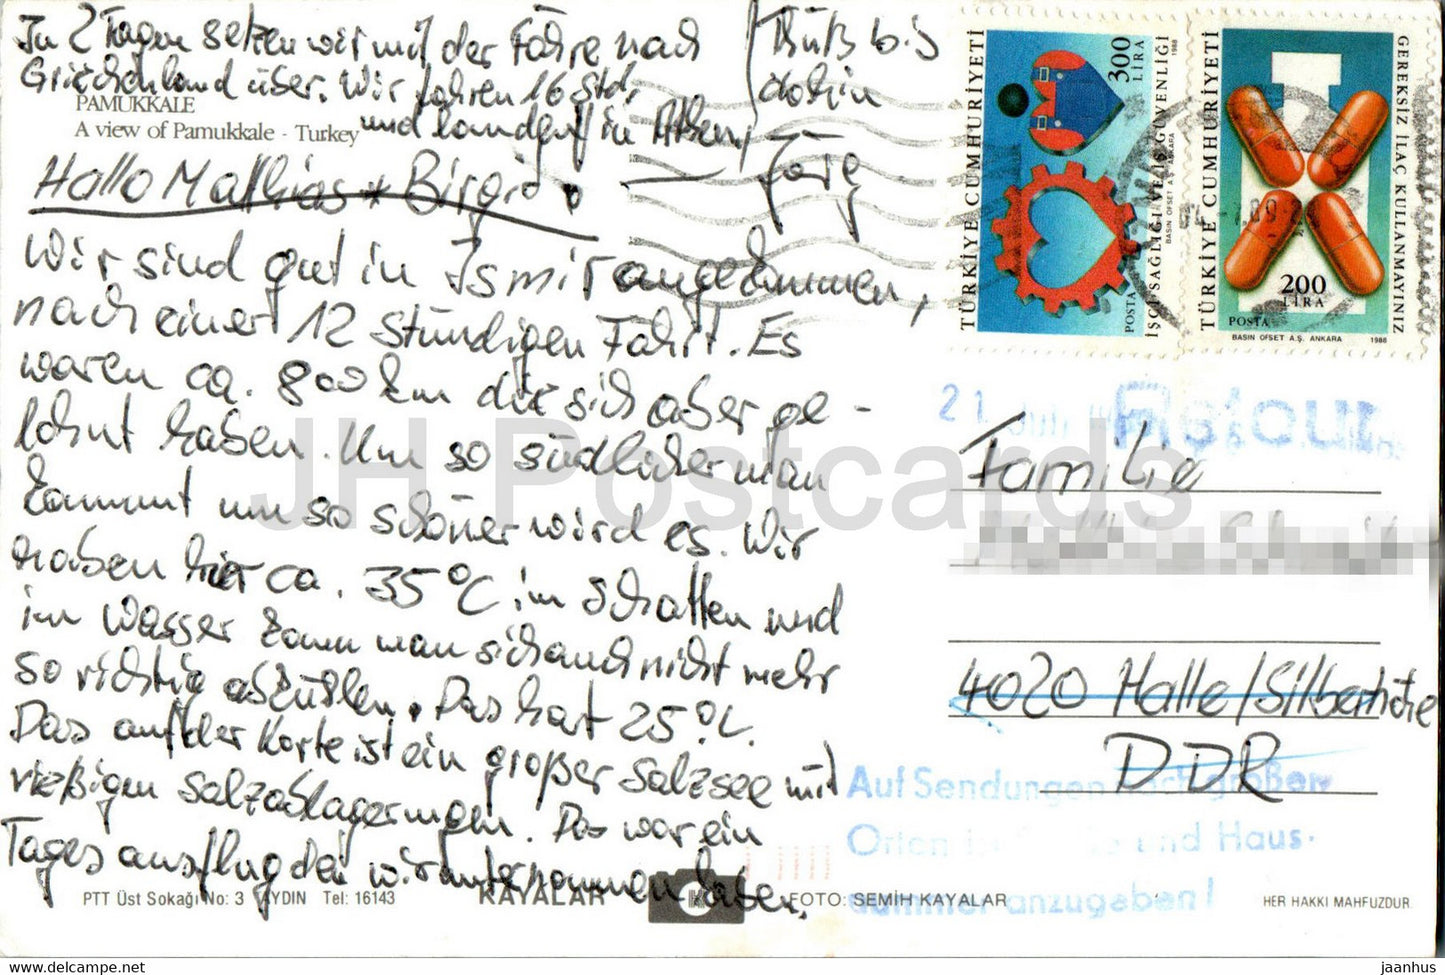 In 2 Tagen setzen wir mit der Fähre nach
Griechenland über. Wir fahren 16 Std.
und landen in Athen,
Tschüß bis
dahin
Jörg
PAMUKKALE
A view of Pamukkale - Turkey
Hallo Mathias + Birgid
Wir sind gut in Ismir angekommen,
nach einer 12 stündigen Fahrt. Es
waren ca. 800 km die sich aber ge-
lohnt haben. Um so südlicher man
kommt um so schöner wird es. Wir
haben hier ca. 35°C im Schatten und
im Wasser kann man sich auch nicht mehr
so richtig abkühlen. Das hat 25°C.
Das auf der Karte ist ein großer Salzsee mit
rießigen Salzablagerungen. Das war ein
Tagesausflug den wir unternommen haben.
PTT Üst Sokağı No: 3 AYDIN Tel: 16143
KAYALAR
FOTO: SEMİH KAYALAR
HER HAKKI MAHFUZDUR
TÜRKİYE CUMHURİYETİ
300
LİRA
POSTA
İŞÇİ SAĞLIĞI VE İŞ GÜVENLİĞİ
BASIN OFSET A.Ş. ANKARA 1988
TÜRKİYE CUMHURİYETİ
200
LİRA
POSTA
GEREKSİZ İLAÇ KULLANMAYINIZ
BASIN OFSET A.Ş. ANKARA 1988
21
Retour
Familie
4020 Halle/Silberhöhe
DDR
Auf Sendungen nach großen
Orten ist und Haus-
nummer anzugeben!
JH Postcards
www.delcampe.net
jaanhus